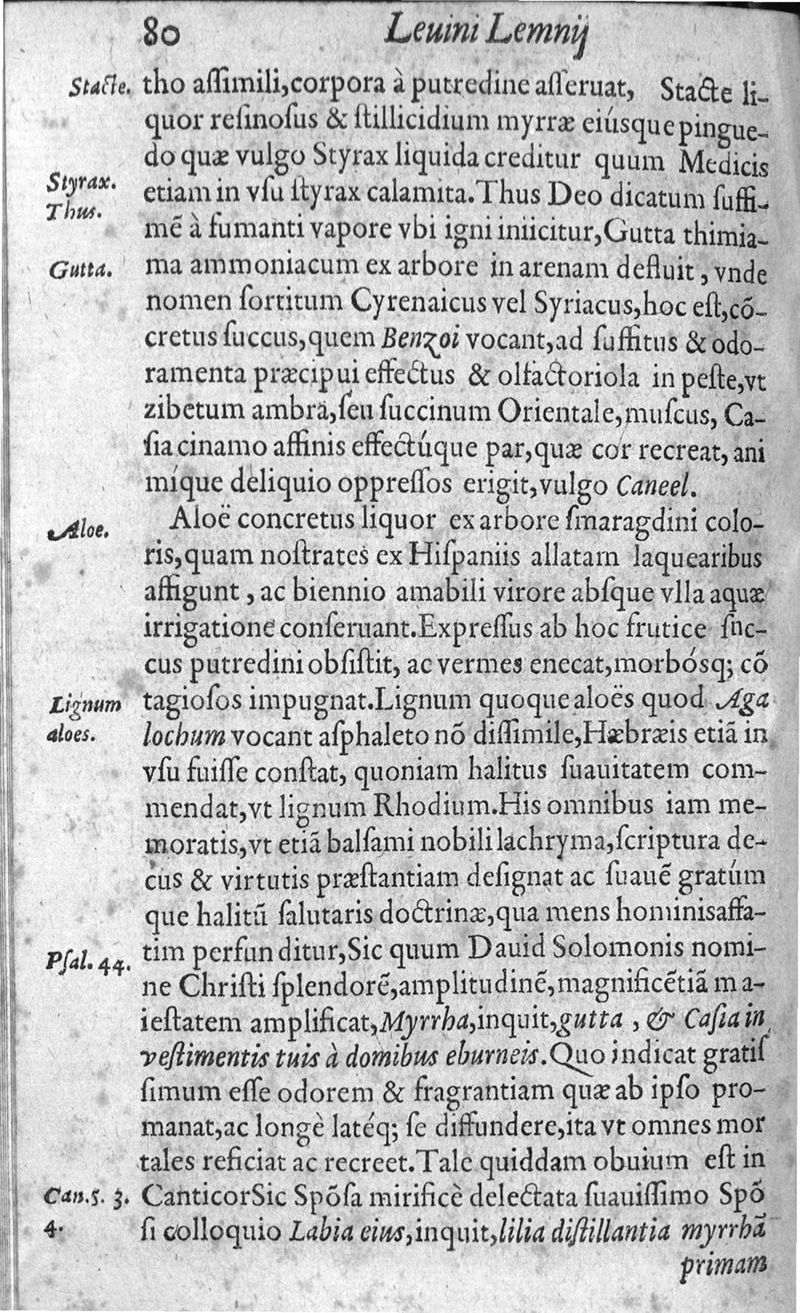 80 Leuini Lemnij
Stacte. tho aſſimili,corpora à putredine aſſeruat, Stacte li-
quor reſinoſus & ſtillicidium myrræ eiúsque pingue-
do quæ vulgo Styrax liquida creditur quum Medicis
Styrax. etiam in vſu ſtyrax calamita.Thus Deo dicatum ſuffi-
Thus. mẽ à fumanti vapore vbi igni iniicitur,Gutta thimia-
Gutta. ma ammoniacum ex arbore in arenam defluit, vnde
nomen ſortitum Cyrenaicus vel Syriacus,hoc eſt,cõ-
cretus ſuccus,quem Benzoi vocant,ad ſuffitus & odo-
ramenta præcipui effectus & olfactoriola in peſte,vt
zibetum ambrã,ſeu ſuccinum Orientale,muſcus, Ca-
ſia cinamo affinis effectúque par,quæ cor recreat, ani
míque deliquio oppreſſos erigit,vulgo Caneel.
Aloe. Aloë concretus liquor ex arbore ſmaragdini colo-
ris,quam noſtrates ex Hiſpaniis allatam laquearibus
affigunt, ac biennio amabili virore abſque vlla aquæ
irrigatione conſeruant.Expreſſus ab hoc frutice ſuc-
cus putredini obſiſtit, ac vermes enecat,morbósq; cõ
Lignum tagioſos impugnat.Lignum quoque aloës quod Aga
aloes. lochum vocant aſphaleto nõ diſſimile,Hæbræis etiã in
vſu fuiſſe conſtat, quoniam halitus ſuauitatem com-
mendat,vt lignum Rhodium.His omnibus iam me-
moratis,vt etiã balſami nobili lachryma,ſcriptura de-
cus & virtutis præſtantiam deſignat ac ſuauẽ gratúm
que halitũ ſalutaris doctrinæ,qua mens hominisaffa-
Pſal. 44. tim perfun ditur,Sic quum Dauid Solomonis nomi-
ne Chriſti ſplendorẽ,amplitudinẽ,magnificẽtiã ma-
ieſtatem amplificat,Myrrha,inquit,gutta , & Caſia in
veſtimentis tuis à domibus eburneis.Quo indicat gratiſ
ſimum eſſe odorem & fragrantiam quæ ab ipſo pro-
manat,ac longè latéq; ſe diffundere,ita vt omnes mor
tales reficiat ac recreet.Tale quiddam obuium eſt in
Can.5. 3. CanticorSic Spõſa mirificè delectata ſuauiſſimo Spõ
4. ſi colloquio Labia eius,inquit,lilia diſtillantia myrrhã
primam